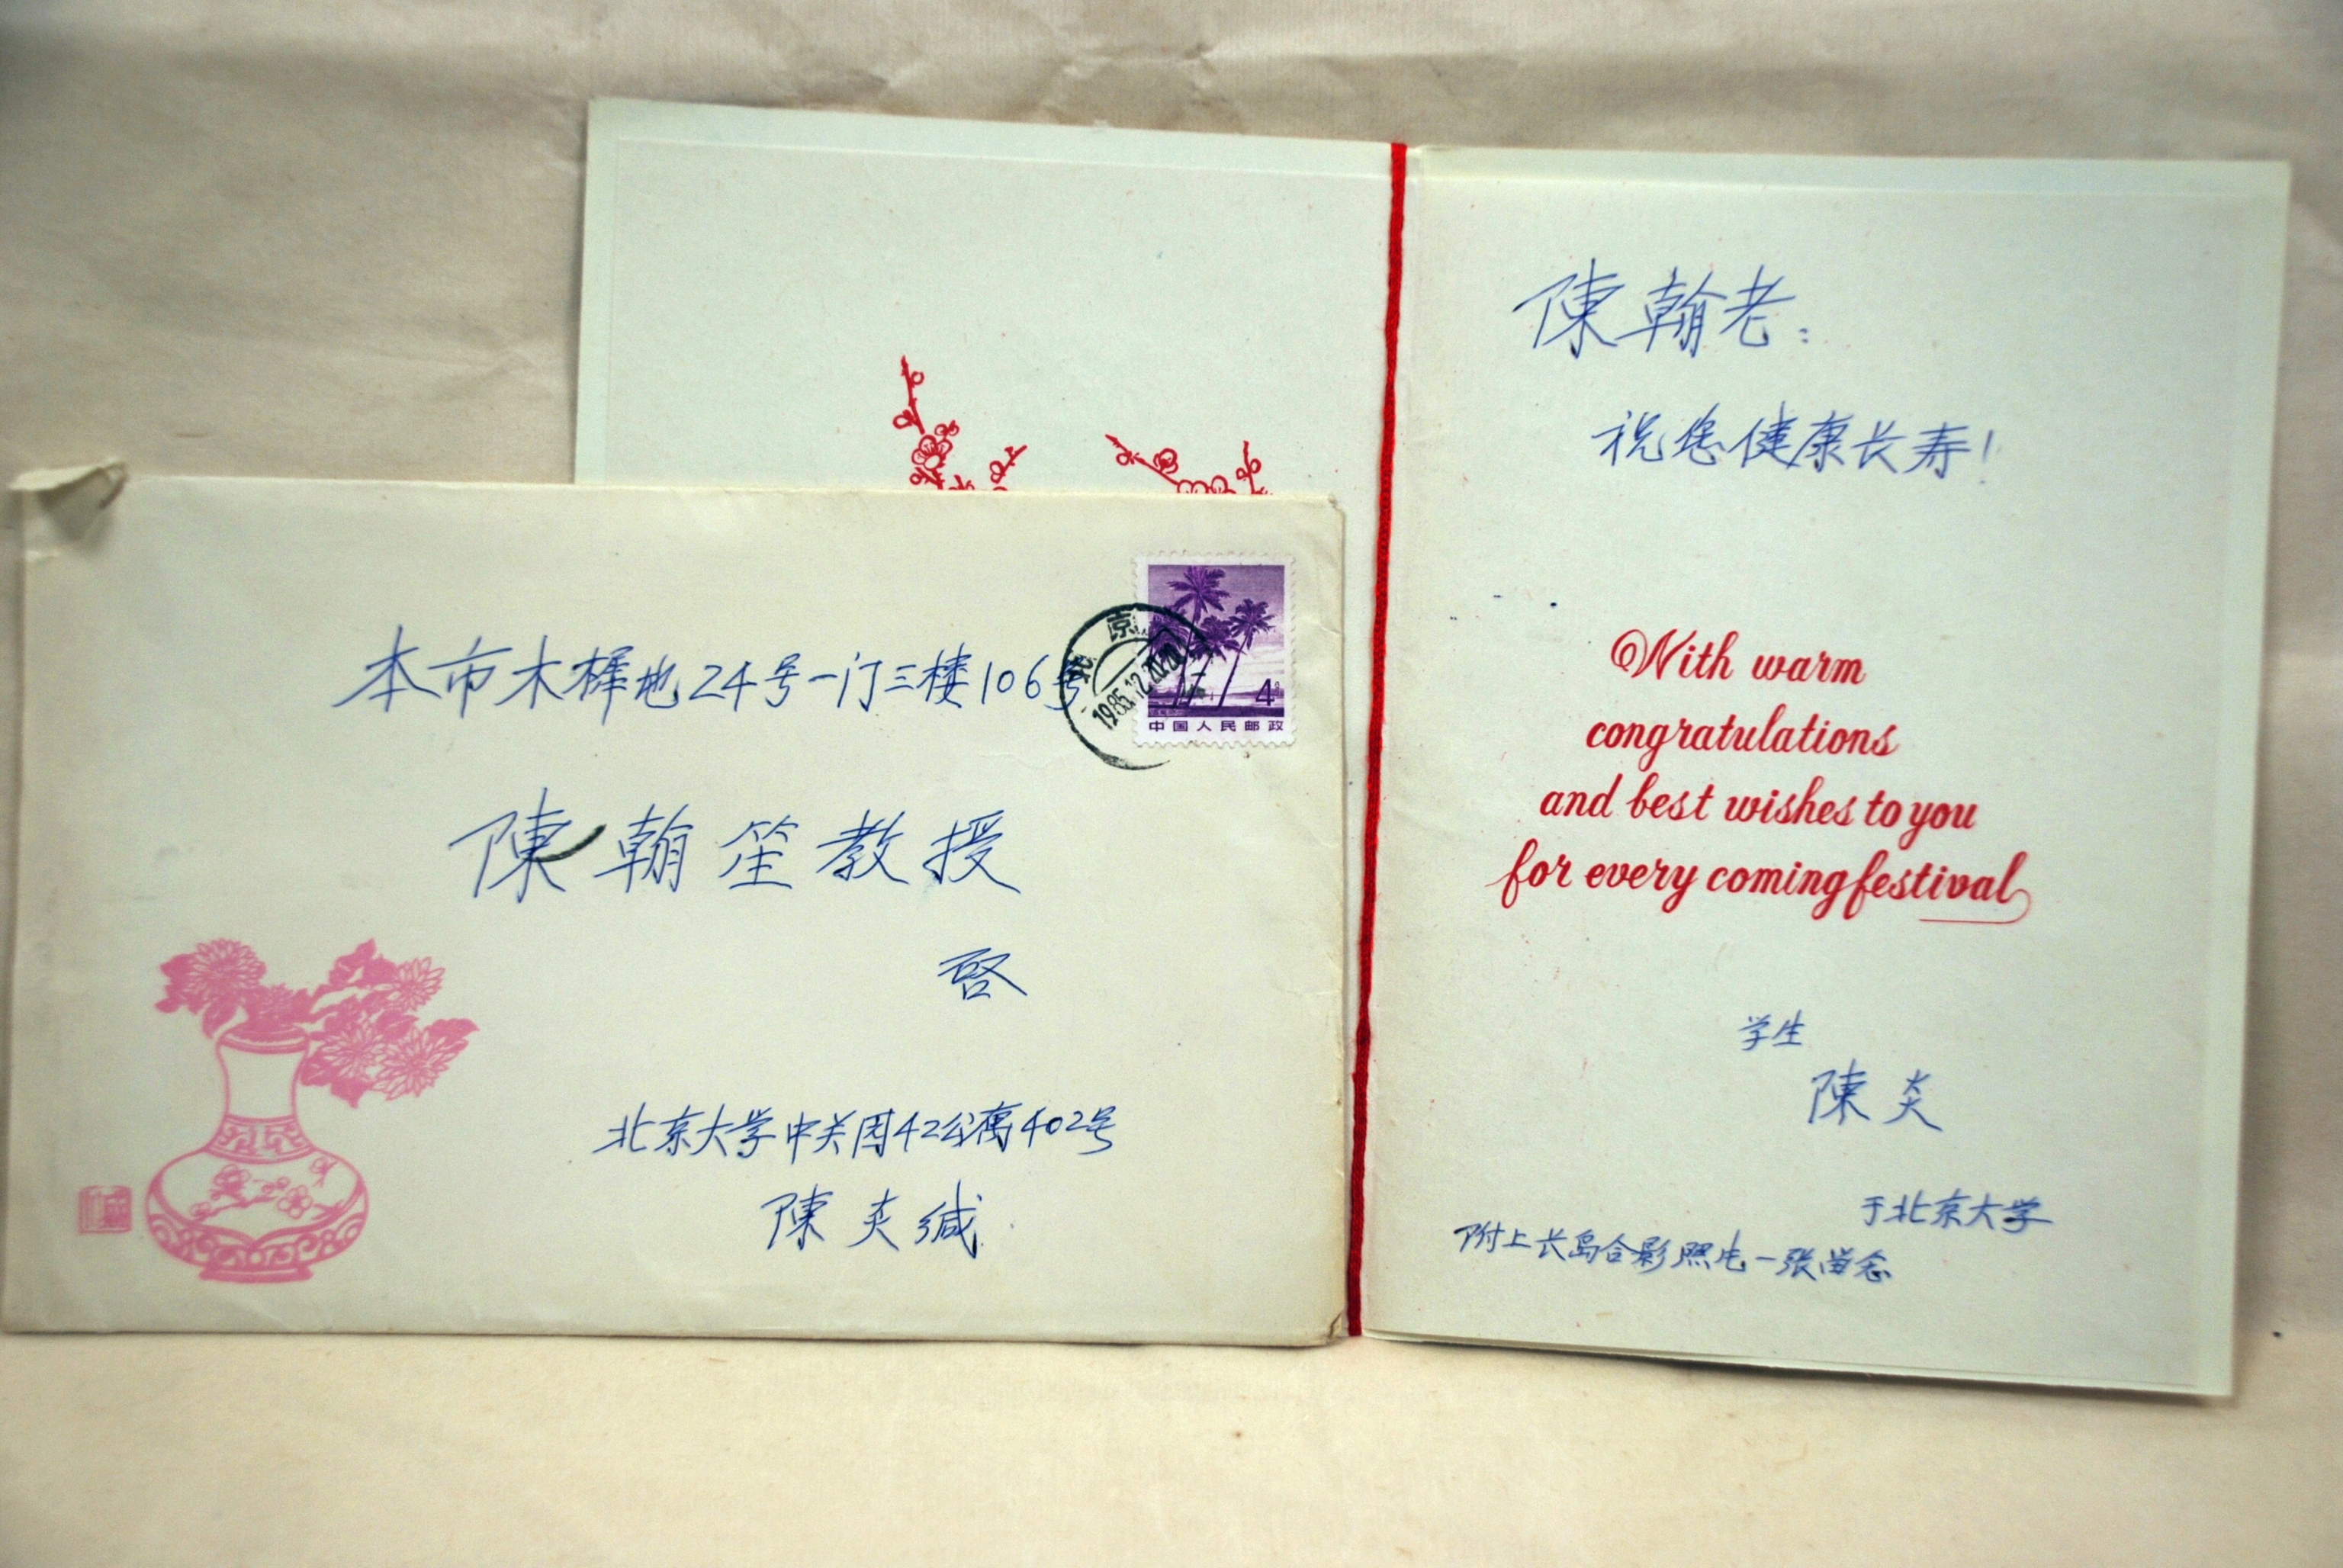 本市木樨地24号一门三楼106号
陳翰笙教授
啓
北京大学中关园42公寓402号
陳炎缄
北京
1985.12.20.20
4分
中国人民邮政
陳翰老：
祝您健康长寿！
With warm
congratulations
and best wishes to you
for every coming festival
学生
陳炎
于北京大学
附上长岛合影照片一张留念